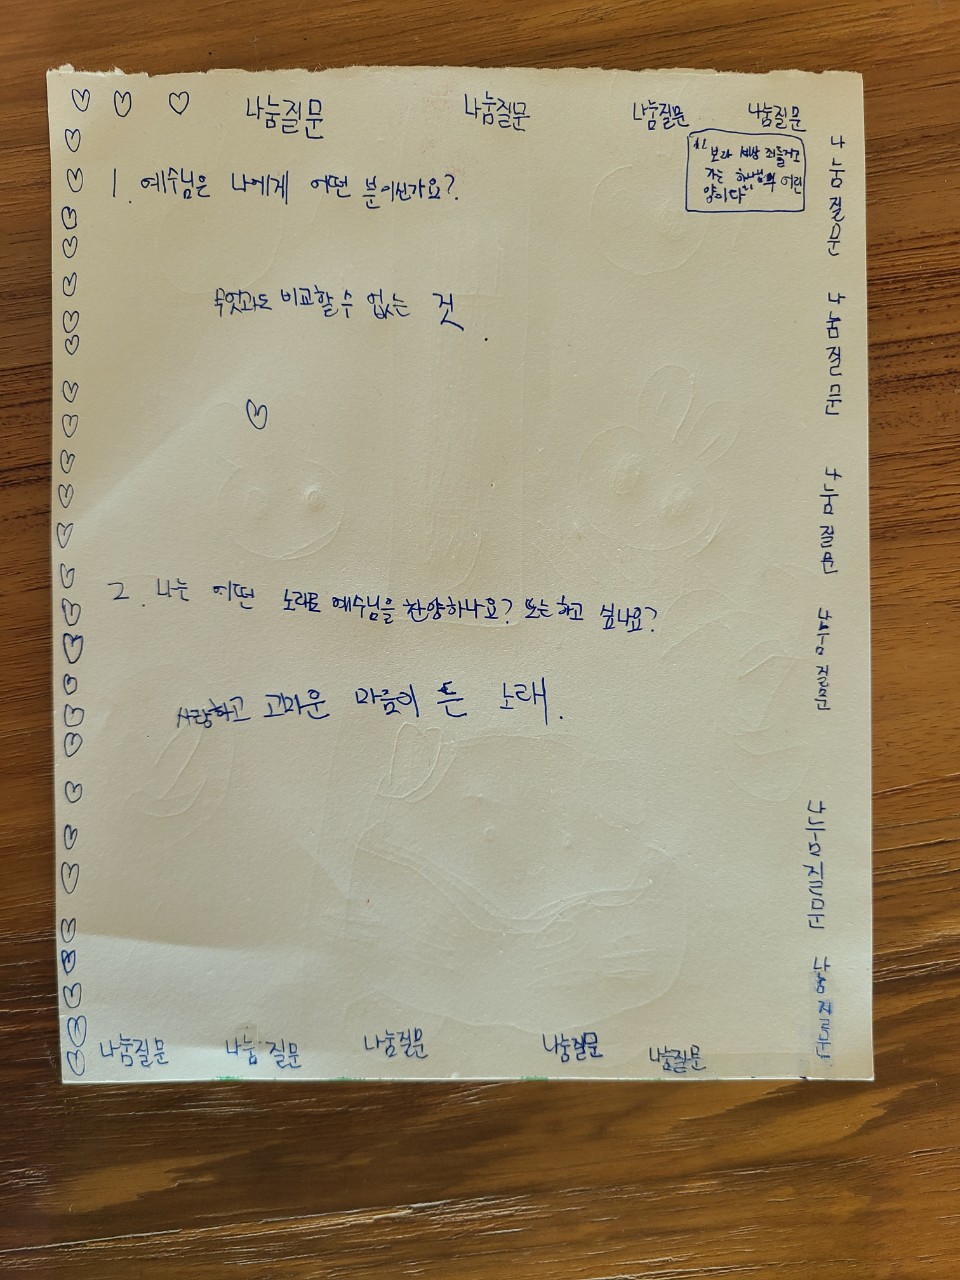 나눔질문 나눔질문 나눔질문 나눔질문
"보라 세상 죄를 지고
가는 하나님의 어린
양이다"
1. 예수님은 나에게 어떤 분이신가요?
무엇과도 비교할 수 없는 것.
2. 나는 어떤 노래로 예수님을 찬양하나요? 또는 하고 싶나요?
사랑하고 고마운 마음이 든 노래.
나눔질문
나눔질문
나눔질문
나눔질문
나눔질문
나눔질문
나눔질문 나눔질문 나눔질문 나눔질문 나눔질문